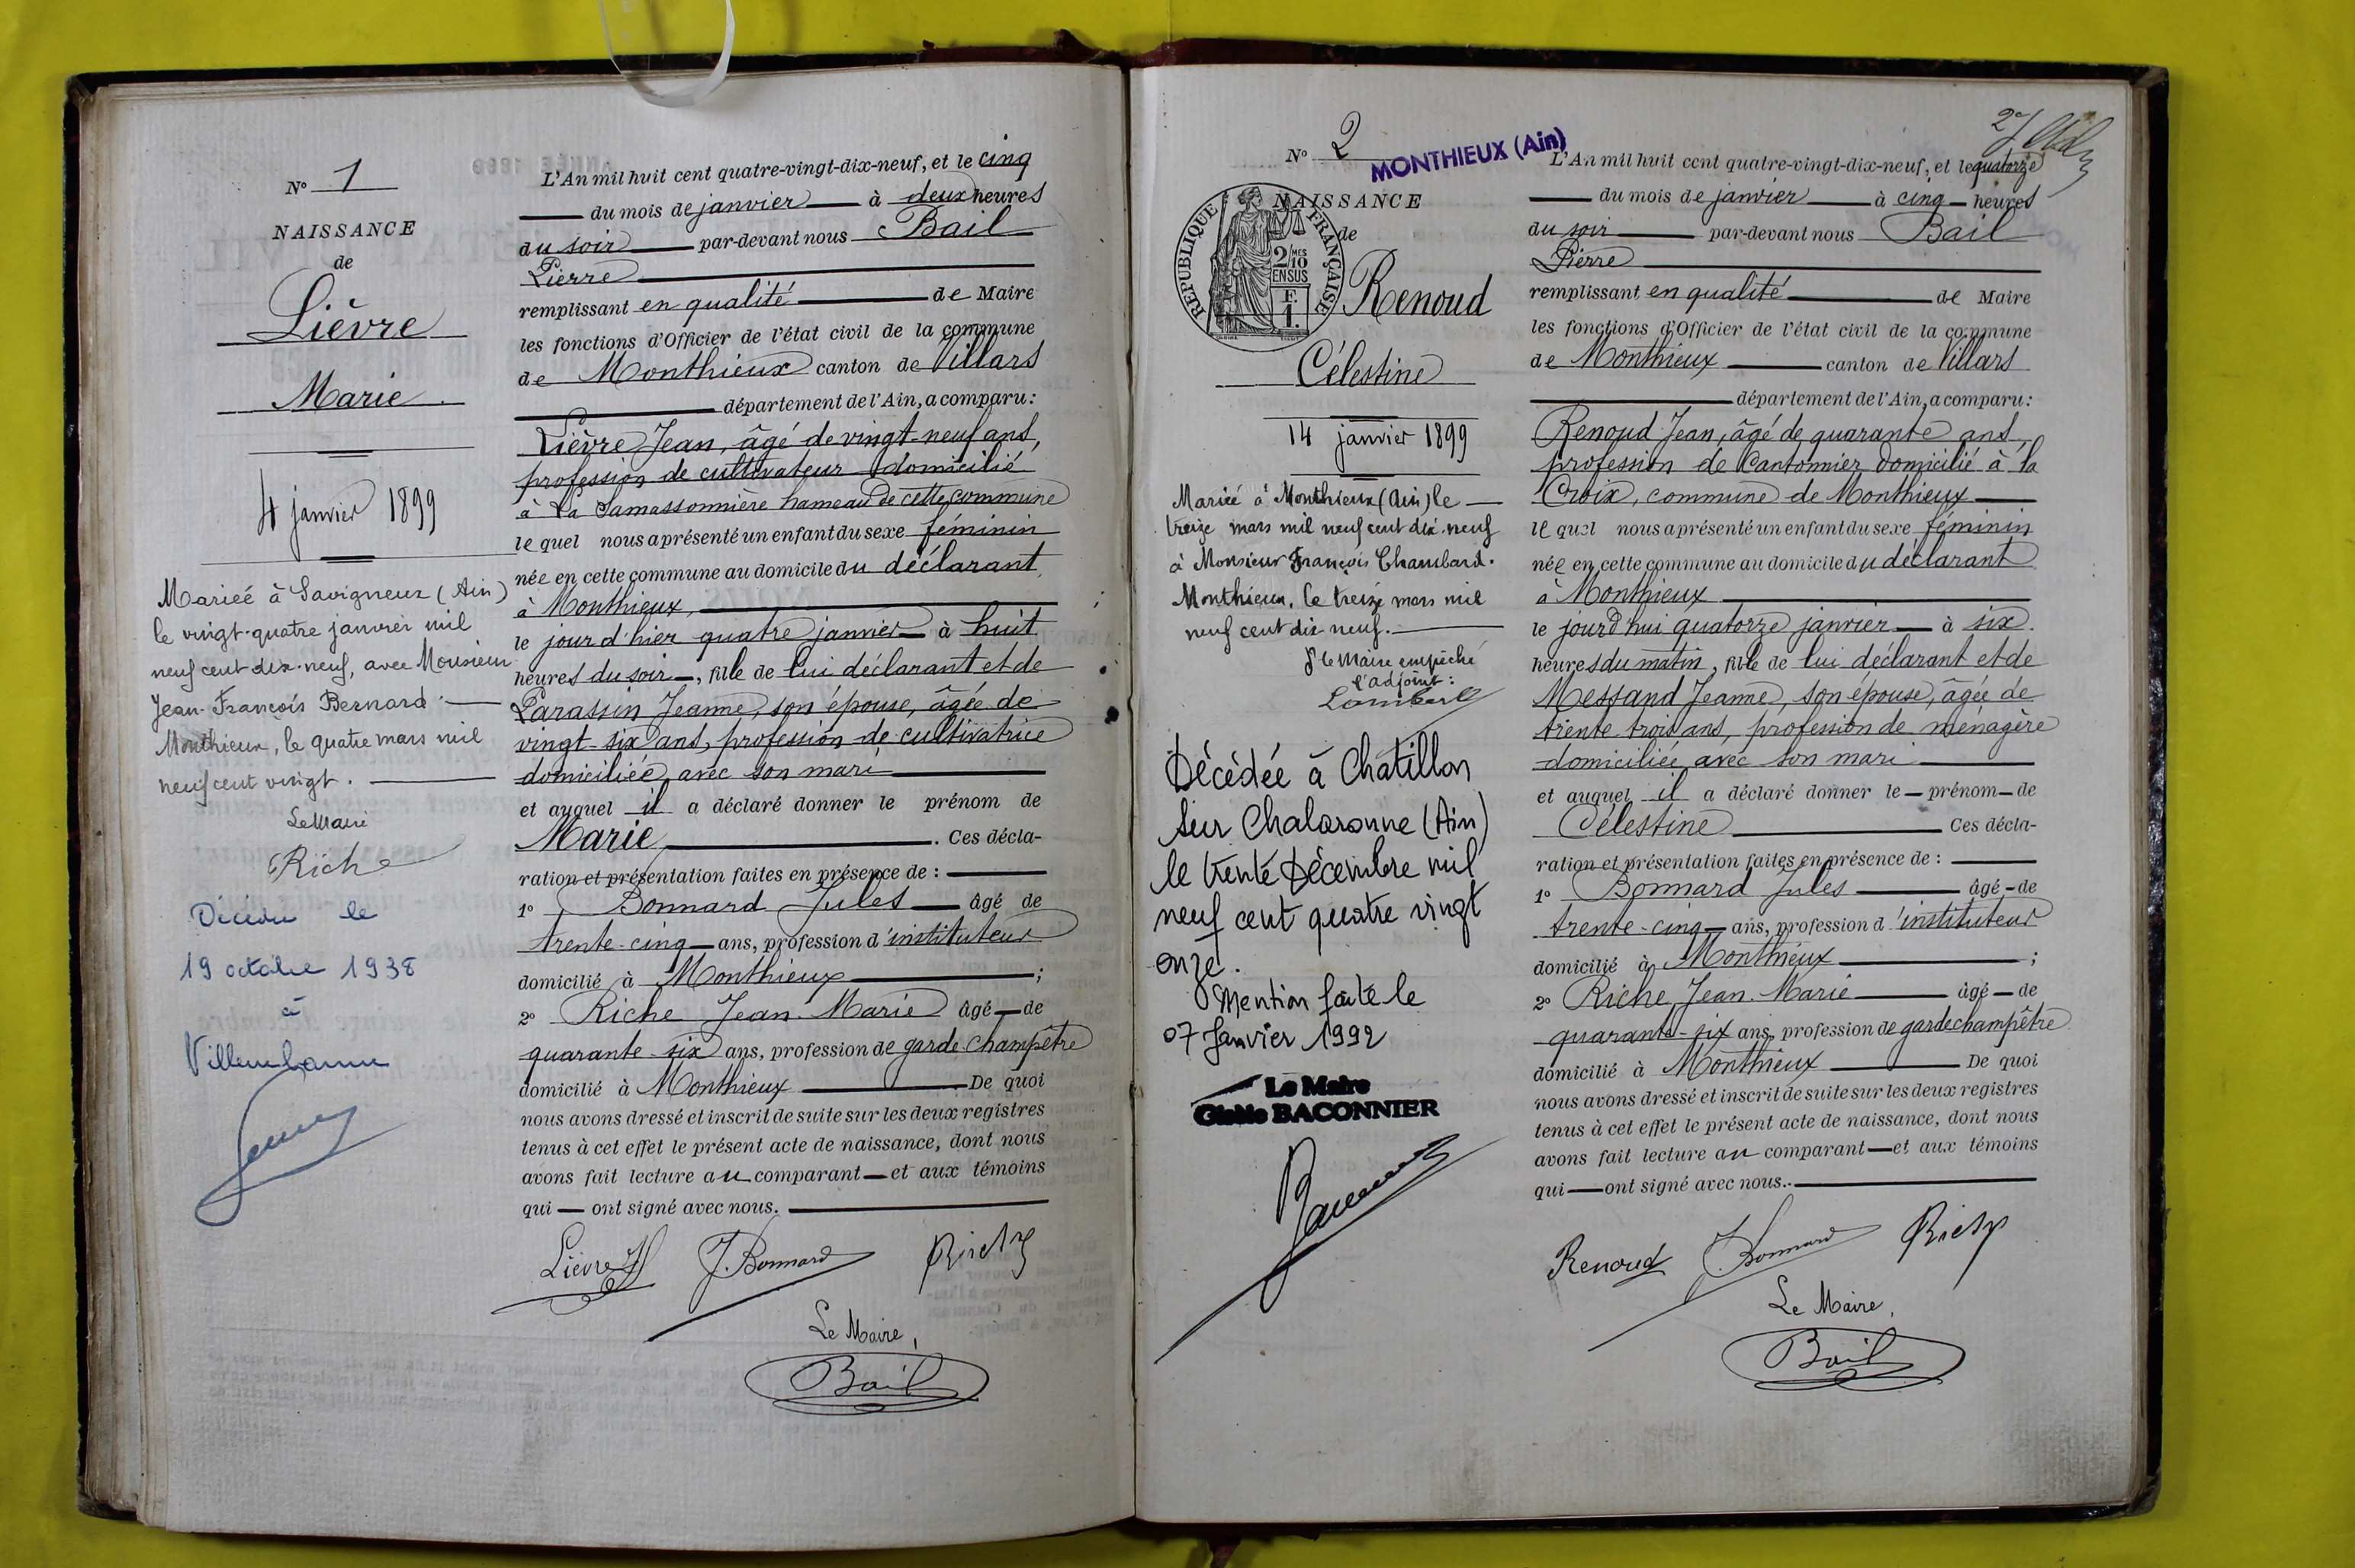 N° 1
NAISSANCE
de
Lièvre
Marie
4 janvier 1899
Mariée à Savigneux (Ain)
le vingt-quatre janvier mil
neuf cent dix-neuf, avec Monsieur
Jean-François Bernard.
Monthieux, le quatre mars mil
neuf cent vingt.
Le Maire
Riche
Décédée le
19 octobre 1938
à
Villeurbanne
L'An mil huit cent quatre-vingt-dix-neuf, et le cinq
du mois de janvier à deux heures
du soir par-devant nous Bail
Pierre
remplissant en qualité de Maire
les fonctions d'Officier de l'état civil de la commune
de Monthieux canton de Villars
département de l'Ain, a comparu:
Lièvre Jean, âgé de vingt-neuf ans,
profession de cultivateur domicilié
à La Samassonnière hameau de cette commune
lequel nous a présenté un enfant du sexe féminin
née en cette commune au domicile du déclarant
à Monthieux,
le jour d'hier quatre janvier à huit
heures du soir, fille de lui déclarant et de
Parassin Jeanne, son épouse, âgée de
vingt-six ans, profession de cultivatrice
domiciliée avec son mari
et auquel il a déclaré donner le prénom de
Marie. Ces décla-
ration et présentation faites en présence de :
1° Bonnard Jules âgé de
trente-cinq ans, profession d'instituteur
domicilié à Monthieux ;
2° Riche Jean-Marie âgé de
quarante-six ans, profession de garde-champêtre
domicilié à Monthieux De quoi
nous avons dressé et inscrit de suite sur les deux registres
tenus à cet effet le présent acte de naissance, dont nous
avons fait lecture au comparant et aux témoins
qui ont signé avec nous.
Lièvre J. Bonnard Riche
Le Maire,
Bail
N° 2
MONTHIEUX (Ain)
NAISSANCE
de
RÉPUBLIQUE FRANÇAISE
2/10 MES
EN SUS
F.
1.
Renoud
Célestine
14 janvier 1899
Mariée à Monthieux (Ain) le
treize mars mil neuf cent dix-neuf
à Monsieur François Chambard.
Monthieux, le treize mars mil
neuf cent dix neuf.
Pr le Maire empêché
l'adjoint :
Lambert
Décédée à Chatillon
sur Chalaronne (Ain)
le trente Décembre mil
neuf cent quatre vingt
onze.
Mention faite le
07 Janvier 1992
Le Maire
BACONNIER
L'An mil huit cent quatre-vingt-dix-neuf, et le quatorze
du mois de janvier à cinq heures
du soir par-devant nous Bail
Pierre
remplissant en qualité de Maire
les fonctions d'Officier de l'état civil de la commune
de Monthieux canton de Villars
département de l'Ain, a comparu:
Renoud Jean, âgé de quarante ans,
profession de Cantonnier domicilié à la
Croix, commune de Monthieux
lequel nous a présenté un enfant du sexe féminin
née en cette commune au domicile du déclarant
à Monthieux
le jourd'hui quatorze janvier à six
heures du matin, fille de lui déclarant et de
Messand Jeanne, son épouse, âgée de
trente trois ans, profession de ménagère
domiciliée avec son mari
et auquel il a déclaré donner le prénom de
Célestine Ces décla-
ration et présentation faites en présence de :
1° Bonnard Jules âgé de
trente-cinq ans, profession d'instituteur
domicilié à Monthieux ;
2° Riche Jean-Marie âgé de
quarante-six ans, profession de garde champêtre
domicilié à Monthieux De quoi
nous avons dressé et inscrit de suite sur les deux registres
tenus à cet effet le présent acte de naissance, dont nous
avons fait lecture au comparant et aux témoins
qui ont signé avec nous.
Renoud J. Bonnard Riche
Le Maire,
Bail